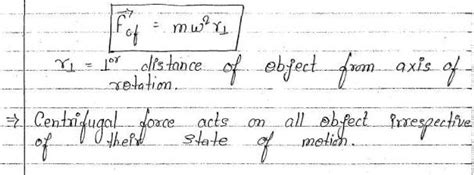 F⃗cf = mω²r⊥
r⊥ = ⊥or distance of object from axis of
rotation.
⇒ Centrifugal force acts on all object irrespective
of their state of motion.